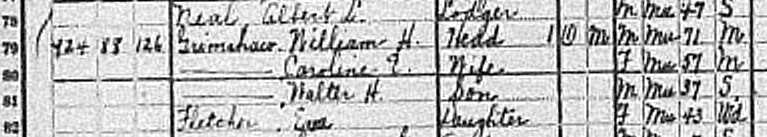 78 Neal, Albert L. Lodger M Mu 47 S
79 424 88 126 Grimshaw, William H. Head 1 O M M Mu 71 M
80 ——— Caroline E. Wife F Mu 57 M
81 ——— Walter H. Son M Mu 37 S
82 Fletcher, Eva Daughter F Mu 43 Wd